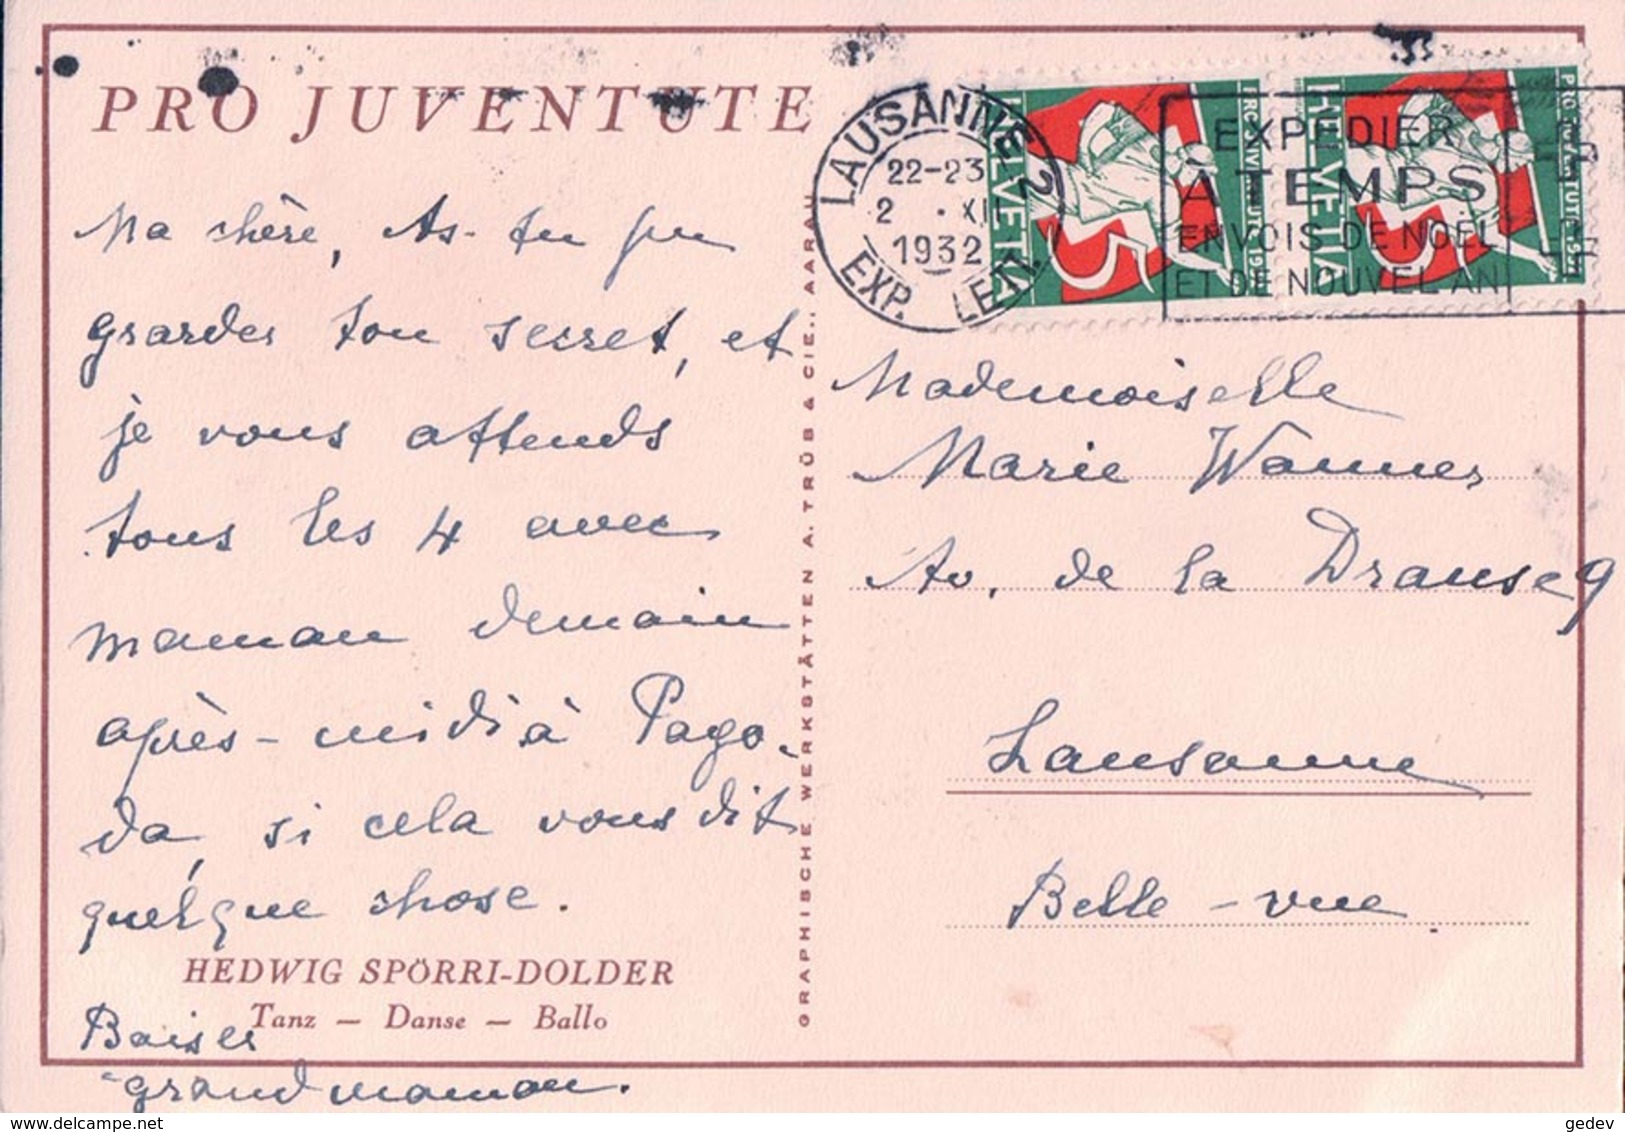 PRO JUVENTUTE
Ma chère, As-tu pu
grarder ton secret, et
je vous attends
tous les 4 avec
maman demain
après-midi à Pago-
da, si cela vous dit
quelque chose.
HEDWIG SPÖRRI-DOLDER
Tanz — Danse — Ballo
Baiser
grandmaman.
GRAPHISCHE WERKSTÄTTEN A. TRÜB & CIE., AARAU
LAUSANNE 2
22-23
2 . XII
1932
EXP. LETT.
EXPÉDIER
À TEMPS
ENVOIS DE NOËL
ET DE NOUVEL AN
HELVETIA
HELVETIA
5
5
Mademoiselle
Marie Wanner
Av. de la Dranse 9
Lausanne
Belle-vue
gedev